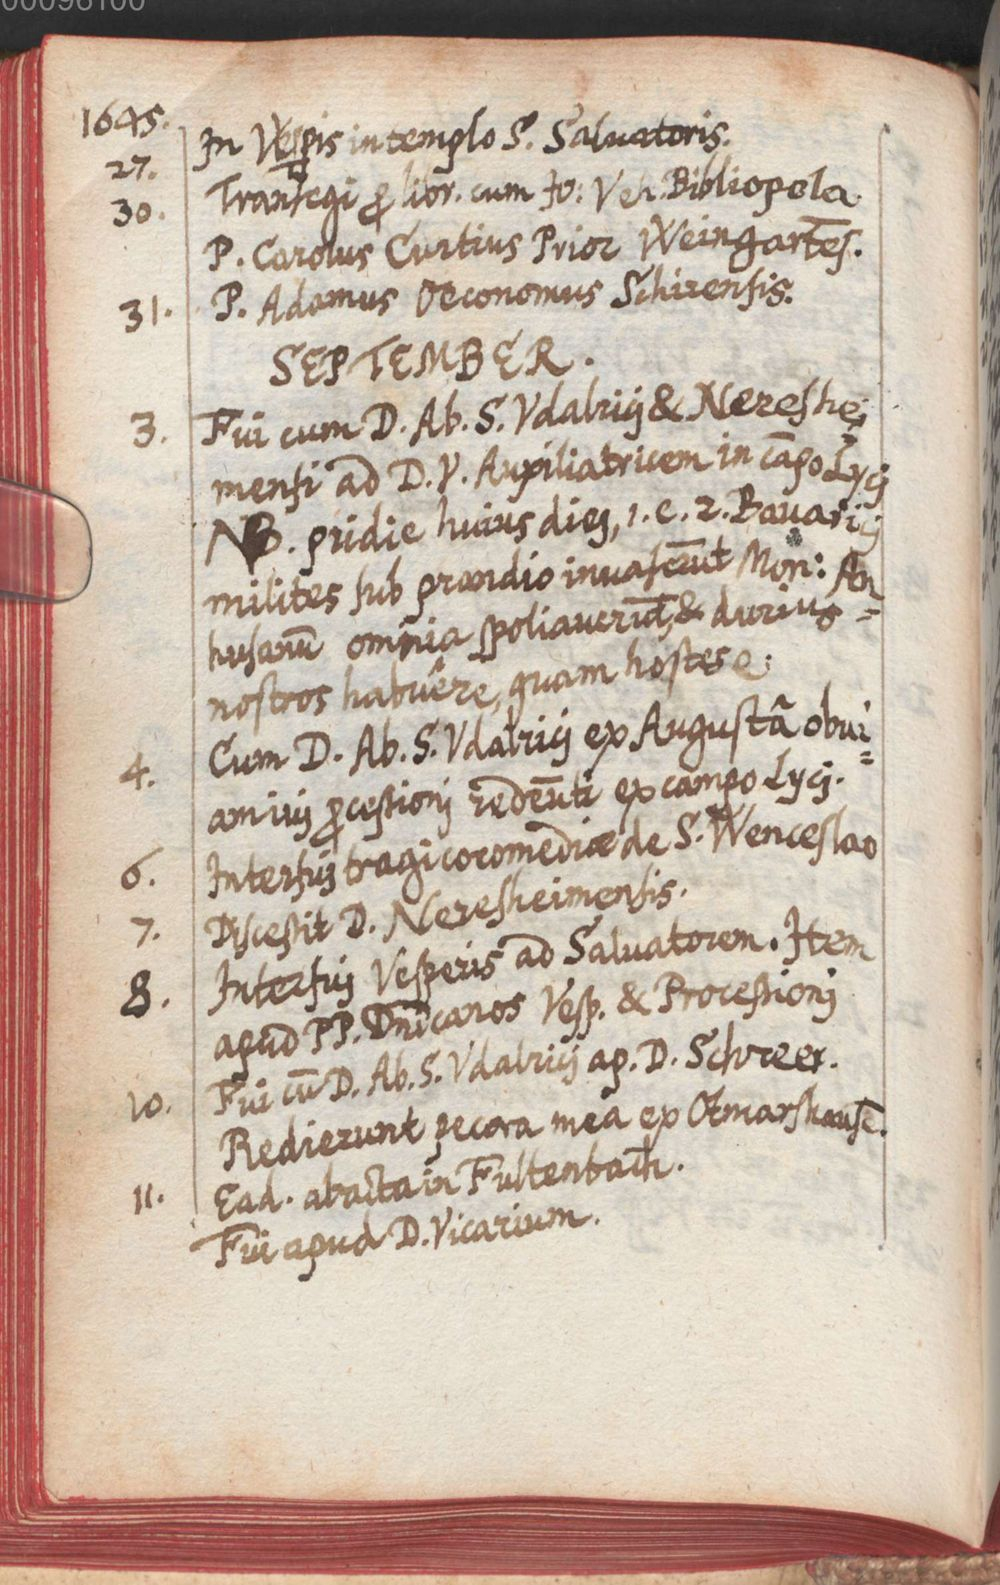 00096100
1645.
27. In Vespis in templo S. Saluatoris.
30. Transegi ꝓ libr. cum Jo: Veh. Bibliopola.
P. Carolus Curtius Prior Weingartēs.
31. P. Adamus Oeconomus Schirensis.
SEPTEMBER.
3. Fui cum D. Ab. S. Vdalricij & Nereshei
mensi ad D. V. Auxiliatricem in cāpo Lycij
NB. pridie huius diej, 1. e. 2. Bauaricij
milites sub prandio inuaserūt Mon: An=
husanū omnia spoliauerūt, & durius
nostros habuêre, quam hostes e:
4. Cum D. Ab. S. Vdalricij ex Augustâ obui=
am iuj ꝓcessionj redeūti ex campo Lycij.
6. Interfuj tragicocomediæ de S. Wenceslao
7. Discessit D. Neresheimensis.
8. Interfuj Vesperis ad Saluatorem. Item
apud PP. Dnīcanos Vesp. & Processionj
10. Fui cū D. Ab. S. Vdalricij ap. D. Schreer.
Redierunt pecora mea ex Otmarshausē.
11. Ead. abacta in Fultenbach.
Fui apud D. Vicarium.